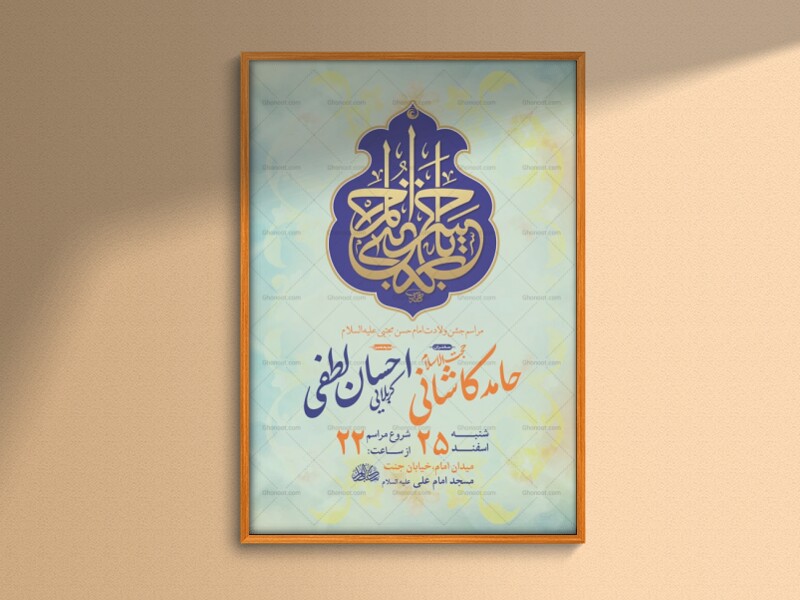 مراسم جشن ولادت امام حسن مجتبی علیه السلام
حجت الاسلام حامد کاشانی
کربلایی احسان لطفی
شنبه ۲۵ اسفند
شروع مراسم از ساعت: ۲۲
میدان امام، خیابان جنت
مسجد امام علی علیه السلام
Ghonoot.com